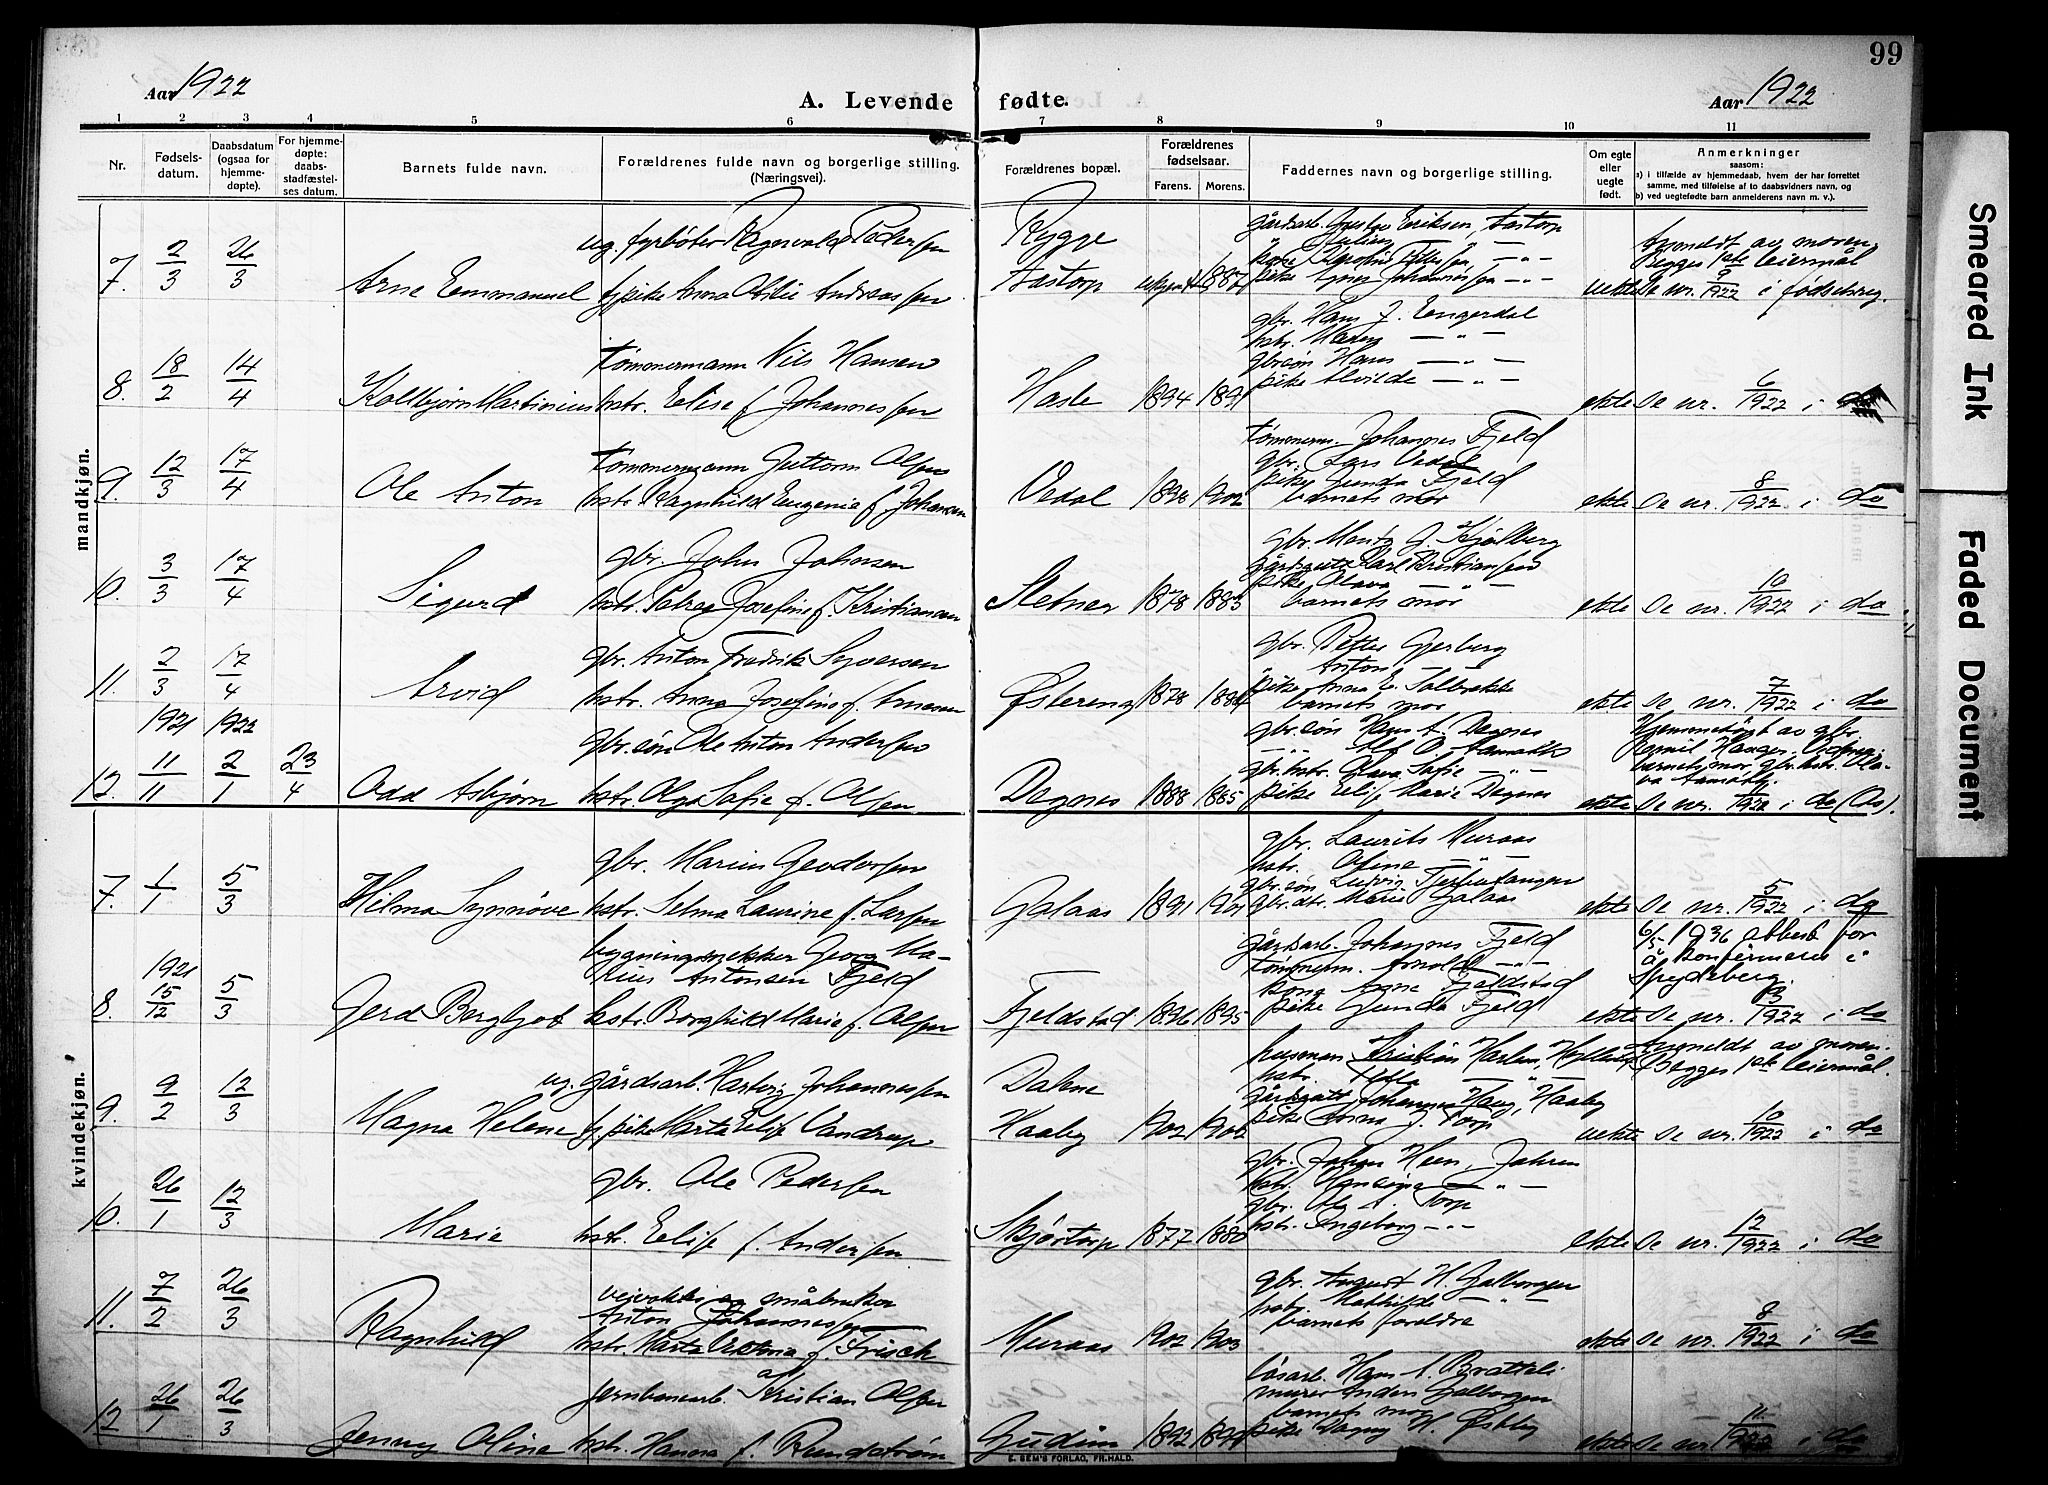 99
Aar 1922
A. Levende fødte.
Aar 1922
1 2 3 4 5 6 7 8 9 10 11
Nr.
Fødsels-
datum.
Daabsdatum
(ogsaa for
hjemme-
døpte).
For hjemme-
døpte:
daabs-
stadfæstel-
ses datum.
Barnets fulde navn.
Forældrenes fulde navn og borgerlige stilling.
(Næringsvei).
Forældrenes bopæl.
Forældrenes
fødselsaar.
Farens. Morens.
Faddernes navn og borgerlige stilling.
Om egte
eller
uegte
født.
Anmerkninger
saasom:
a) i tilfælde av hjemmedaab, hvem der har forrettet
samme, med tilføielse af to daabsvidners navn, og
b) ved uegtefødte barn anmelderens navn m. v.).
mandkjøn.
7. 2/3 26/3 Arne Emmanuel
ug. fyrbøter Ragnvald Pedersen
pike Anna Otilie Andreassen
Rygge
Aastorp
gårdsarb. Gustav Eriksen, Aastorp
Anmeldt av moren.
Begges 1ste leiermål
uekte Se nr. 9/1922 i fødselsreg.
8. 18/2 14/4 Kolbjørn Martinius
tømmermann Nils Hansen
hstr. Elise f. Johannessen
Hasle 1894 1891
gbr. Hans J. Engerdal
hstr. Maren — „ —
gbr.søn Hans — „ —
pike Alvilde — „ —
ekte Se nr. 6/1922 i do
9. 12/3 17/4 Ole Anton
tømmermann Guttorm Olsen
hstr. Ragnhild Eugenie f. Johansen
Vedal 1898 1902
tømmerm. Johannes Fjeld
gbr. Lars Vedal
pike Gunda Fjeld
barnets mor
ekte Se nr. 8/1922 i do
10. 3/3 17/4 Sigurd
gbr. John Johansen
hstr. Petrea Josefine f. Kristiansen
Sletner 1878 1883
gbr. Moritz J. Kjølberg
gårdgutt Karl Kristiansen
pike Olava — „ —
barnets mor
ekte Se nr. 10/1922 i do
11. 2/3 17/4 Arvid
gbr. Anton Fredrik Syversen
hstr. Anna Josefine f. Arnesen
Østereng 1878
gbr. Petter Gjerberg
Anton „
pike Anna E. Solbrekke
barnets mor
ekte Se nr. 7/1922 i do
12. 1921 11/11 1922 2/1 23/4 Odd Asbjørn
gbr.søn Ole Anton Andersen
hstr. Olga Sofie f. Olsen
Degnes 1888 1885
gbr.søn Hans A. Degnes
— „ — Alf O. Aamodt
gbr.hstr. Olava Sofie — „ —
pike Elise Marie Degnes
Hjemmedøpt av gbr.
barnets mor, gbr.hstr. Ola-
va Aamodt.
ekte Se nr. 1/1922 i do (Os).
kvindekjøn.
7. 1/1 5/3 Hilma Synnøve
gbr. Marius Teodorsen
hstr. Selma Laurine f. Larsen
Galaas 1891 1901
gbr. Laurits Muraas
hstr. Oline — „ —
gbr.søn Ludvig
gbr.dtr. Marie Galaas
ekte Se nr. 5/1922 i do
8. 1921 15/12 5/3 Gerd Bergljot
bygningssnekker Georg Ma-
rius Antonsen Fjeld
hstr. Borghild Marie f. Olsen
Fjeldstad 1896 1895
gårdsarb. Johannes Fjeld
tømmerm. Arnold — „ —
kone Agne Fjeldstad
pike Gunda Fjeld
6/5 1936 attest for
å konfirmeres i
Spydeberg.
ekte Se nr. 13/1922 i do
9. 9/2 12/3 Magna Helene
ug. gårdsarb. Hartvig Johannessen
pike Marta Elise Vandrup
Dalene
Haaby 1902 1902
husmann Kristian Karlsen,
hstr.
gårdgutt Johannes Haug, Haaby
pike Anna J. Torp
Anmeldt av moren.
Begges 1ste leiermål.
uekte Se nr. 10/1922 i do
10. 26/1 12/3 Marie
gbr. Ole Pedersen
hstr. Elise f. Andersen
Skjørtorp 1877 1880
gbr. Johan Heen, Jahren
hstr. Hansine — „ —
gbr. Ole A. Torp
hstr. Ingeborg — „ —
ekte Se nr. 12/1922 i do
11. 7/2 26/3 Ragnhild
veivokter og småbruker
Anton Johannessen
hstr. Marta Viktoria f. Frisch
Muraas 1902 1903
gbr. August H. Galborgen
hstr. Mathilde — „ —
barnets foreldre
ekte Se nr. 8/1922 i do
12. 26/1 26/3 Jenny Oline
jernbanearb. Kristian Olsen
hstr. Hanna f. Rundstrøm
Gudim 1892
løsarb. Hans A. Bratteli
murer Anders Galborgen
barnets mor
pike Dagny H. Østby
ekte Se nr. 11/1922 i do
E. SEM'S FORLAG, FR.HALD.
Smeared Ink
Faded Document